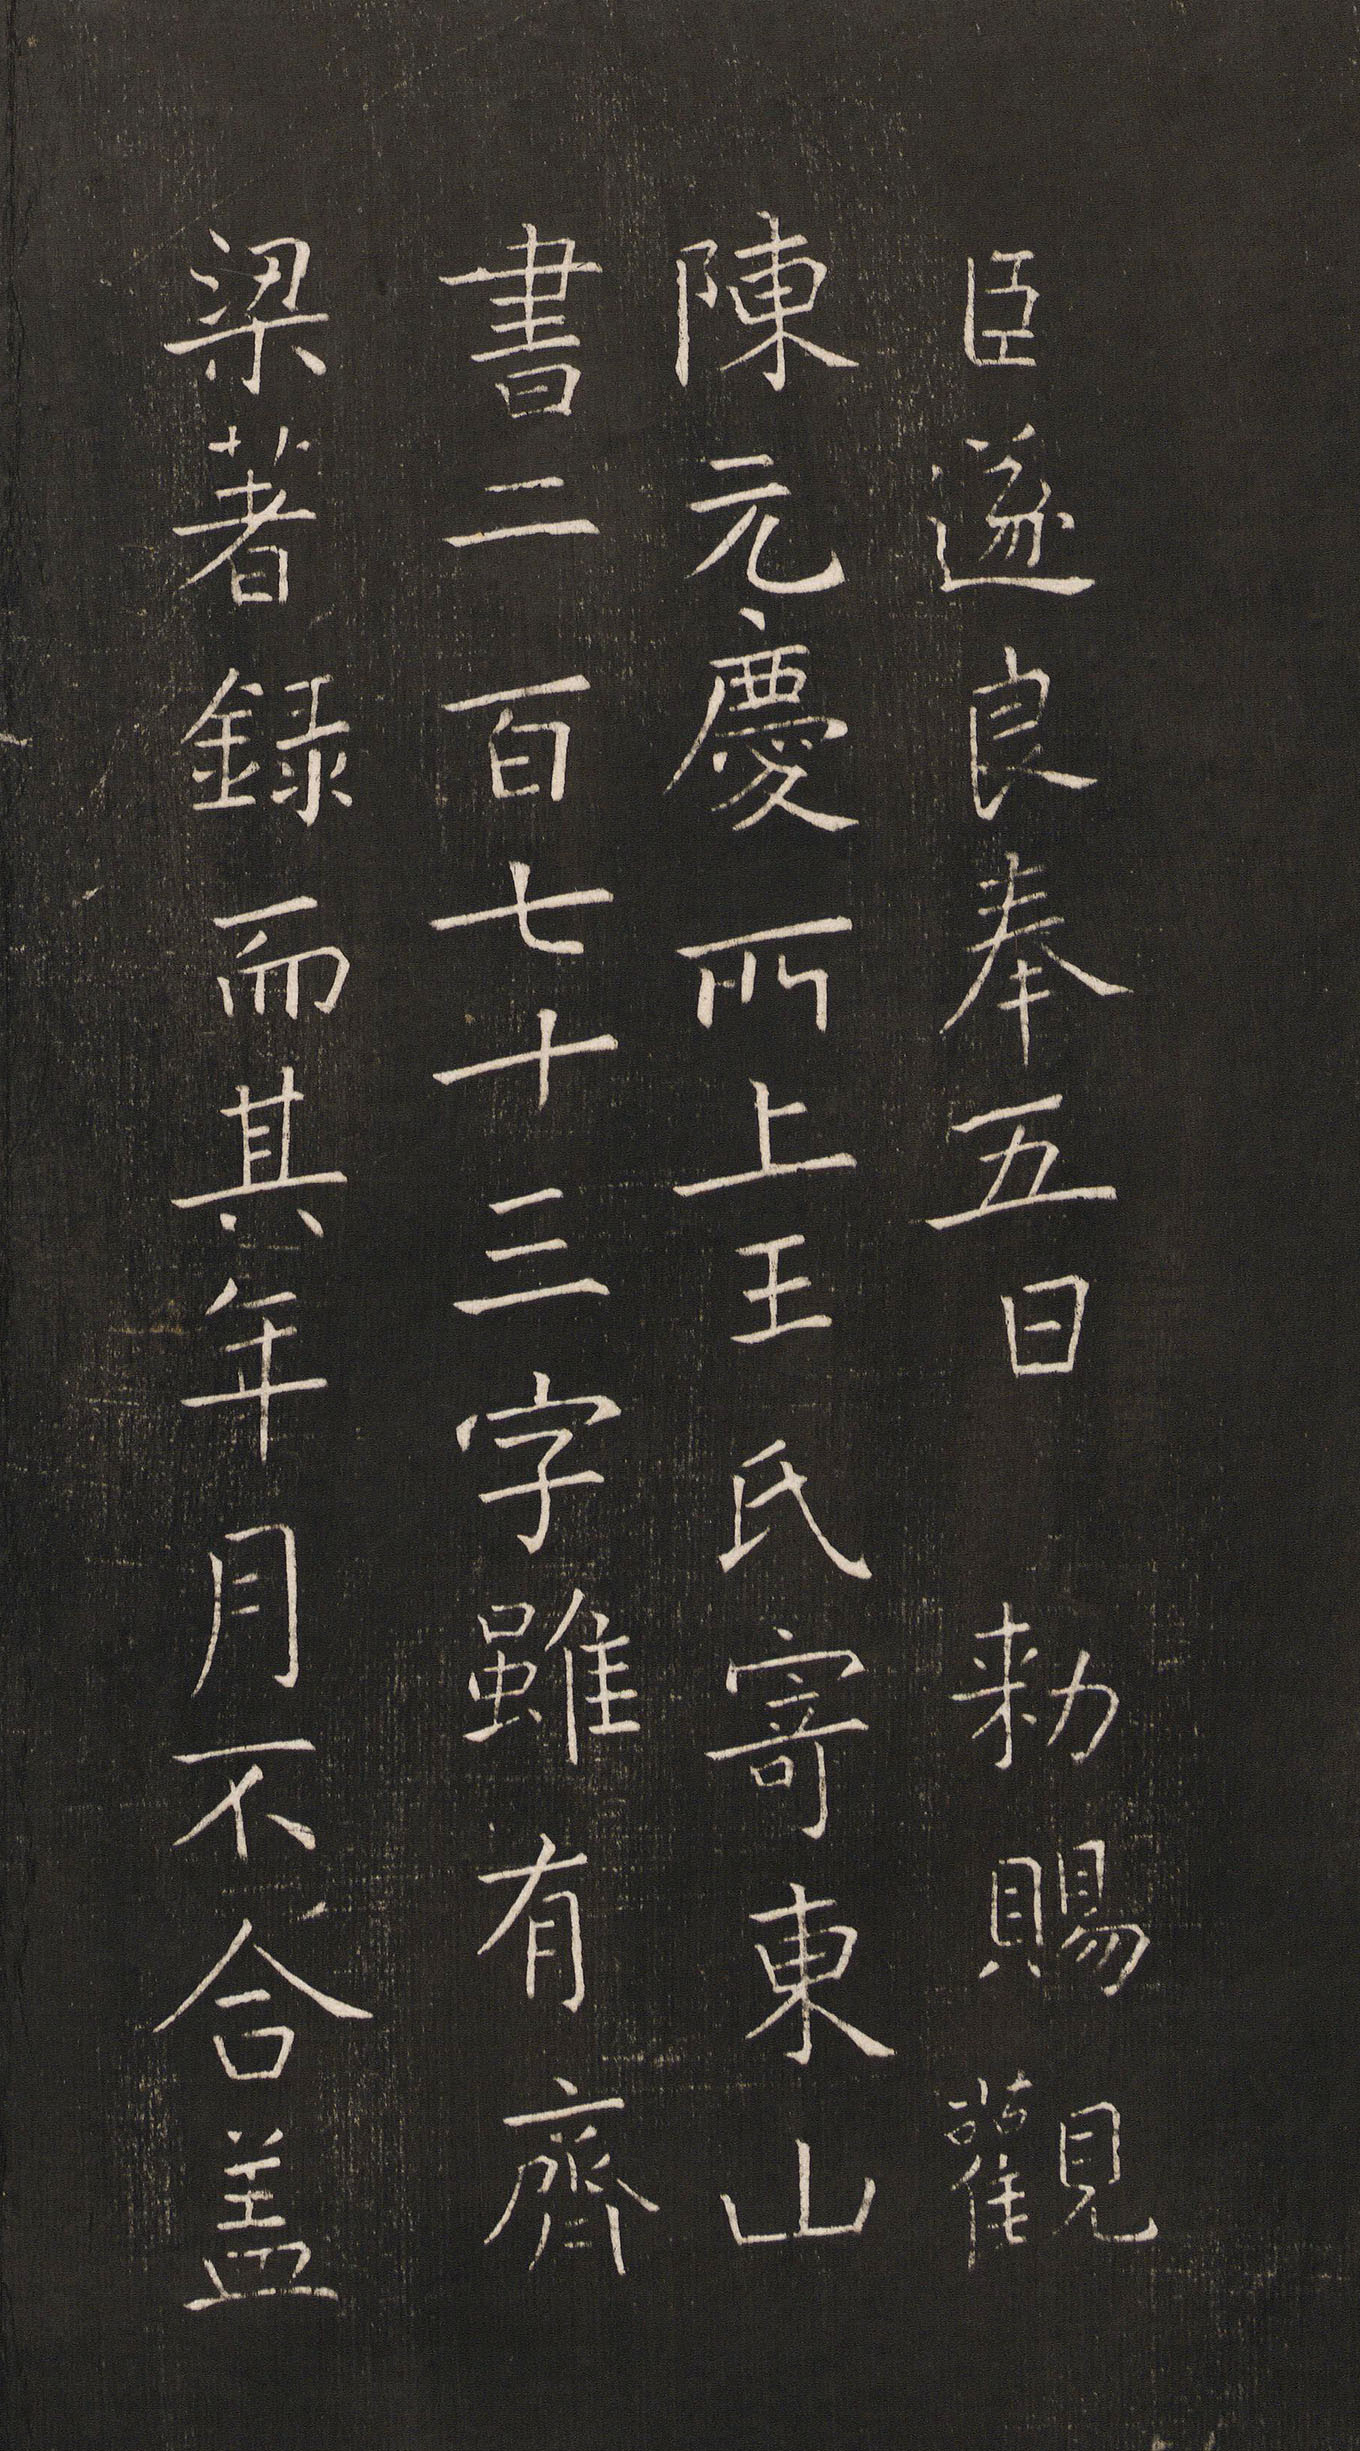 臣遂良奉五日 勅賜觀
陳元慶所上王氏寄東山
書二百七十三字雖有齊
梁著録而其年月不合盖